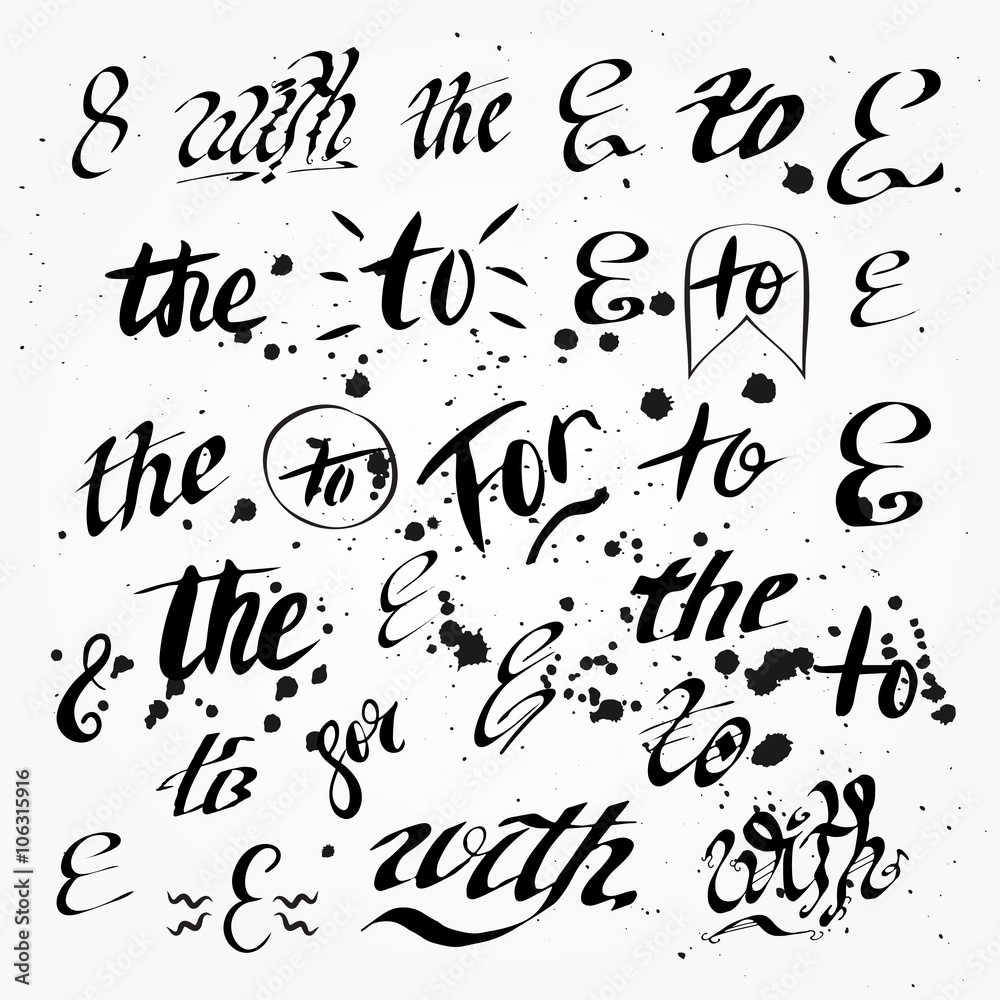 & with the & to &
the to & to &
the to For to &
the & the
& & to
to for to
& & with with
Adobe Stock | #106315916